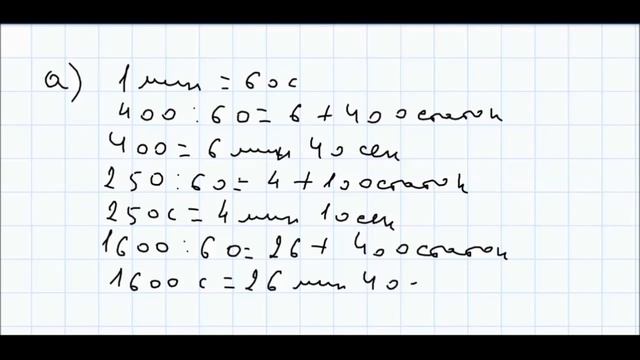 а) 1 мин = 60с
400 : 60 = 6 + 40 остаток
400 = 6 мин 40 сек
250 : 60 = 4 + 10 остаток
250с = 4 мин 10 сек
1600 : 60 = 26 + 40 остаток
1600 с = 26 мин 40